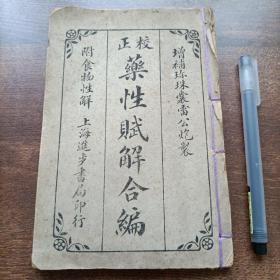 增補珍珠囊雷公炮製
校正
藥性賦解合編
附食物性解
上海進步書局印行